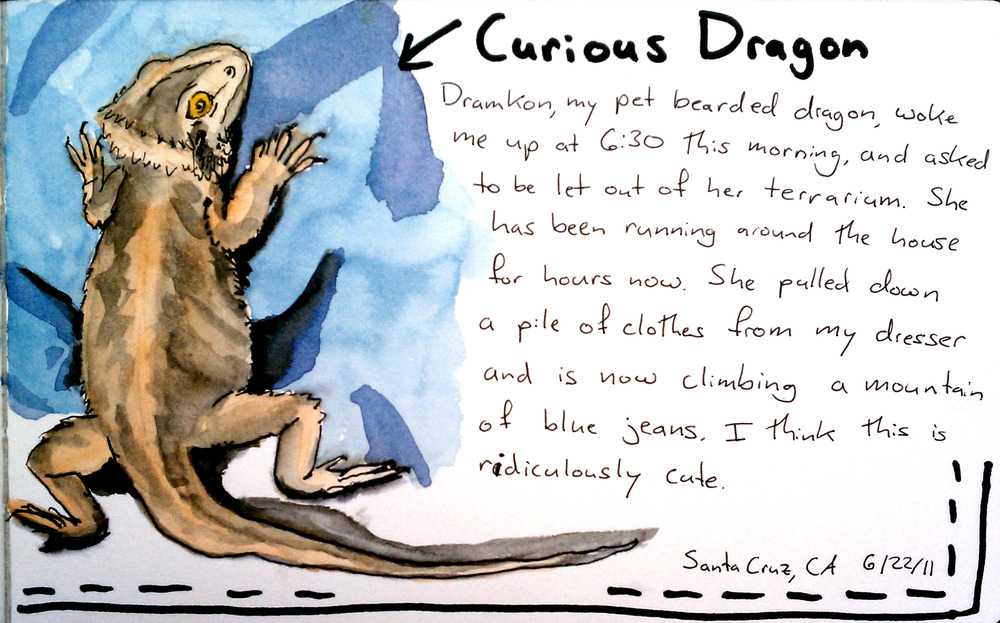 Curious Dragon
Dramkon, my pet bearded dragon, woke
me up at 6:30 this morning, and asked
to be let out of her terrarium. She
has been running around the house
for hours now. She pulled down
a pile of clothes from my dresser
and is now climbing a mountain
of blue jeans. I think this is
ridiculously cute.
Santa Cruz, CA 6/22/11